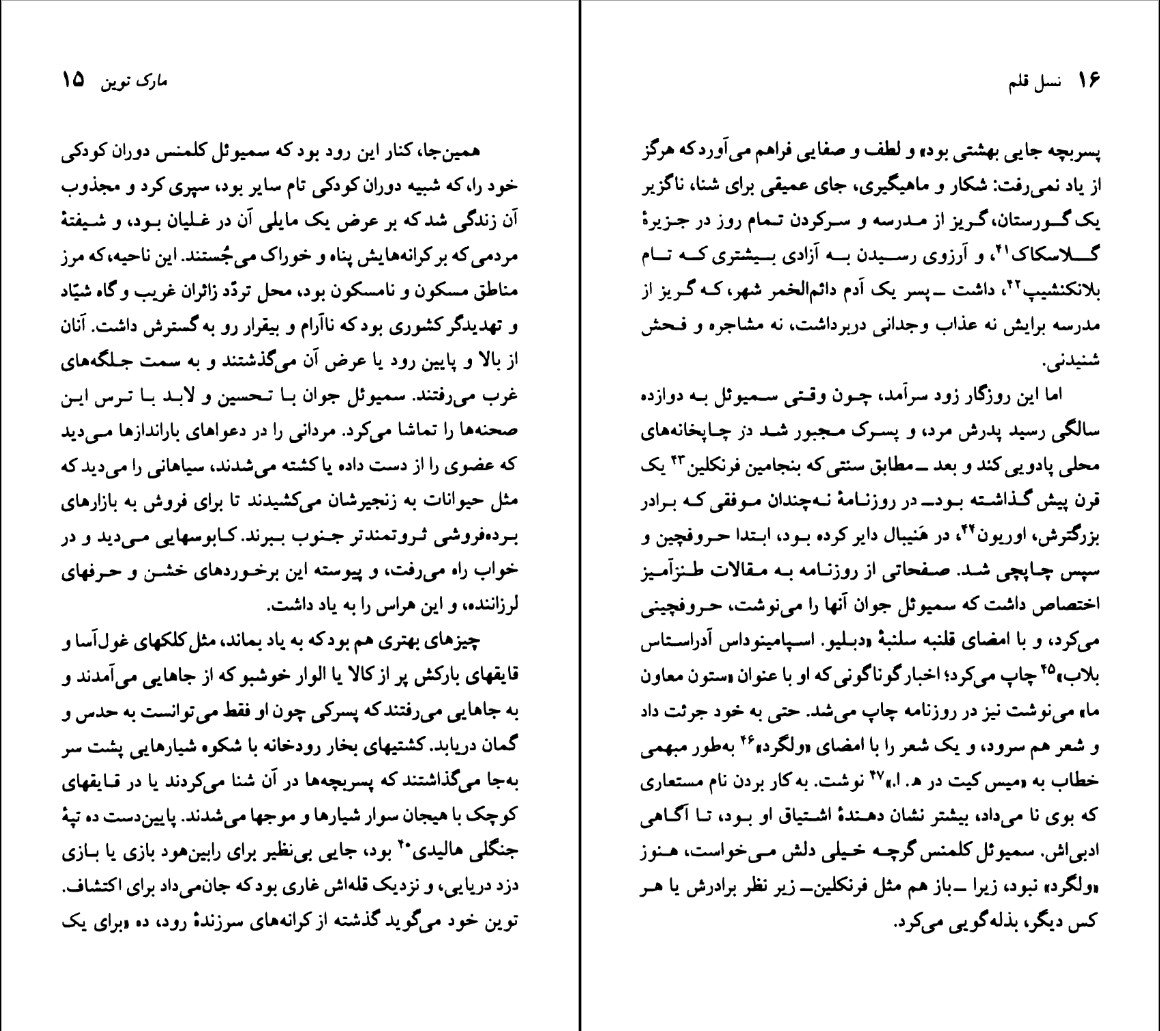 مارک توین ۱۵
همین‌جا، کنار این رود بود که سمیوئل کلمنس دوران کودکی
خود را، که شبیه دوران کودکی تام سایر بود، سپری کرد و مجذوب
آن زندگی شد که بر عرض یک مایلی آن در غلیان بود، و شیفتهٔ
مردمی که بر کرانه‌هایش پناه و خوراک می‌جُستند. این ناحیه، که مرز
مناطق مسکون و نامسکون بود، محل تردّد زائران غریب و گاه شیّاد
و تهدیدگر کشوری بود که ناآرام و بیقرار رو به گسترش داشت. آنان
از بالا و پایین رود یا عرض آن می‌گذشتند و به سمت جلگه‌های
غرب می‌رفتند. سمیوئل جوان با تحسین و لابد با ترس این
صحنه‌ها را تماشا می‌کرد. مردانی را در دعواهای باراندازها می‌دید
که عضوی را از دست داده یا کشته می‌شدند، سیاهانی را می‌دید که
مثل حیوانات به زنجیرشان می‌کشیدند تا برای فروش به بازارهای
برده‌فروشی ثروتمندتر جنوب ببرند. کابوسهایی می‌دید و در
خواب راه می‌رفت، و پیوسته این برخوردهای خشن و حرفهای
لرزاننده، و این هراس را به یاد داشت.
چیزهای بهتری هم بود که به یاد بماند، مثل کلکهای غول‌آسا و
قایقهای بارکش پر از کالا یا الوار خوشبو که از جاهایی می‌آمدند و
به جاهایی می‌رفتند که پسرکی چون او فقط می‌توانست به حدس و
گمان دریابد. کشتیهای بخار رودخانه با شکوه شیارهایی پشت سر
به‌جا می‌گذاشتند که پسربچه‌ها در آن شنا می‌کردند یا در قایقهای
کوچک با هیجان سوار شیارها و موجها می‌شدند. پایین‌دست ده تپهٔ
جنگلی هالیدی۴۰ بود، جایی بی‌نظیر برای رابین‌هود بازی یا بازی
دزد دریایی، و نزدیک قله‌اش غاری بود که جان‌می‌داد برای اکتشاف.
توین خود می‌گوید گذشته از کرانه‌های سرزندهٔ رود، ده «برای یک
۱۶ نسل قلم
پسربچه جایی بهشتی بود» و لطف و صفایی فراهم می‌آورد که هرگز
از یاد نمی‌رفت: شکار و ماهیگیری، جای عمیقی برای شنا، ناگزیر
یک گورستان، گریز از مدرسه و سرکردن تمام روز در جزیرهٔ
گلاسکاک۴۱، و آرزوی رسیدن به آزادی بیشتری که تام
بلانکنشیپ۴۲، داشت ــ پسر یک آدم دائم‌الخمر شهر، که گریز از
مدرسه برایش نه عذاب وجدانی دربرداشت، نه مشاجره و فحش
شنیدنی.
اما این روزگار زود سرآمد، چون وقتی سمیوئل به دوازده
سالگی رسید پدرش مرد، و پسرک مجبور شد در چاپخانه‌های
محلی پادویی کند و بعد ــ مطابق سنتی که بنجامین فرنکلین۴۳ یک
قرن پیش گذاشته بود ــ در روزنامهٔ نه‌چندان موفقی که برادر
بزرگترش، اوریون۴۴، در هَنیبال دایر کرده بود، ابتدا حروفچین و
سپس چاپچی شد. صفحاتی از روزنامه به مقالات طنزآمیز
اختصاص داشت که سمیوئل جوان آنها را می‌نوشت، حروفچینی
می‌کرد، و با امضای قلنبه سلنبهٔ «دبلیو. اسپامینوداس آدراستاس
بلاب»۴۵ چاپ می‌کرد؛ اخبار گوناگونی که او با عنوان «ستون معاون
ما» می‌نوشت نیز در روزنامه چاپ می‌شد. حتی به خود جرئت داد
و شعر هم سرود، و یک شعر را با امضای «ولگرد»۴۶ به‌طور مبهمی
خطاب به «میس کیت در ه‍. ا.»۴۷ نوشت. به کار بردن نام مستعاری
که بوی نا می‌داد، بیشتر نشان دهندهٔ اشتیاق او بود، تا آگاهی
ادبی‌اش. سمیوئل کلمنس گرچه خیلی دلش می‌خواست، هنوز
«ولگرد» نبود، زیرا ــ باز هم مثل فرنکلین ــ زیر نظر برادرش یا هر
کس دیگر، بذله‌گویی می‌کرد.